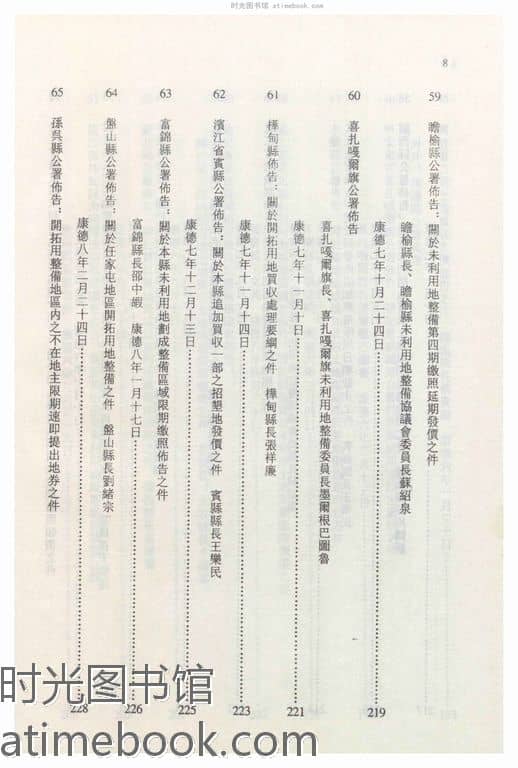 时光图书馆 atimebook.com
8
59 瞻榆縣公署佈告：關於未利用地整備第四期繳照延期發價之件
瞻榆縣長、瞻榆縣未利用地整備協議會委員長蘇紹泉
康德七年十月二十四日 219
60 喜扎嘎爾旗公署佈告
喜扎嘎爾旗長、喜扎嘎爾旗未利用地整備委員長墨爾根巴圖魯
康德七年十一月十日 221
61 樺甸縣佈告：關於開拓用地買収處理要綱之件 樺甸縣長張祥廉
康德七年十一月十四日 223
62 濱江省賓縣公署佈告：關於本縣追加買収一部之招墾地發價之件 賓縣縣長王樂民
康德七年十二月十三日 225
63 富錦縣公署佈告：關於本縣未利用地劃成整備區域限期繳照佈告之件
富錦縣長邵中嘏 康德八年一月十七日 226
64 盤山縣公署佈告：關於任家屯地區開拓用地整備之件 盤山縣長劉緒宗
康德八年二月二十四日 228
65 孫吳縣公署佈告：開拓用整備地區內之不在地主限期速即提出地券之件
时光图书馆
atimebook.com